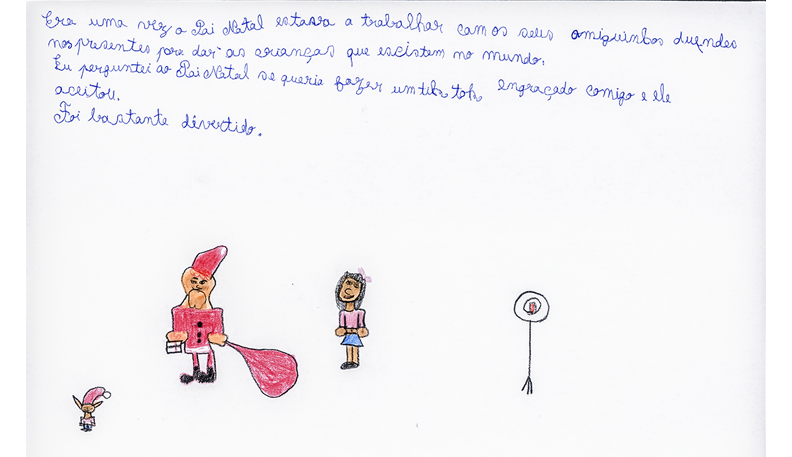 Era uma vez o Pai Natal estava a trabalhar com os seus amiguinhos duendes
nos presentes para dar as crianças que escistem no mundo.
Eu perguntei ao Pai Natal se queria fazer um tik tok engraçado comigo e ele
aceitou.
Foi bastante divertido.